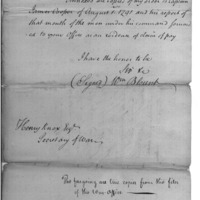 Enclosed are copies of my order to Captain
James Cooper of August 1791 and his report of
that month of the men under his command
as to your office as an evidence of claim of pay
I have the honor to be
Sir &c
(Signed) Wm Blount
Henry Knox Esqr
Secretary of War
The foregoing are true copies from the files
of the War Office